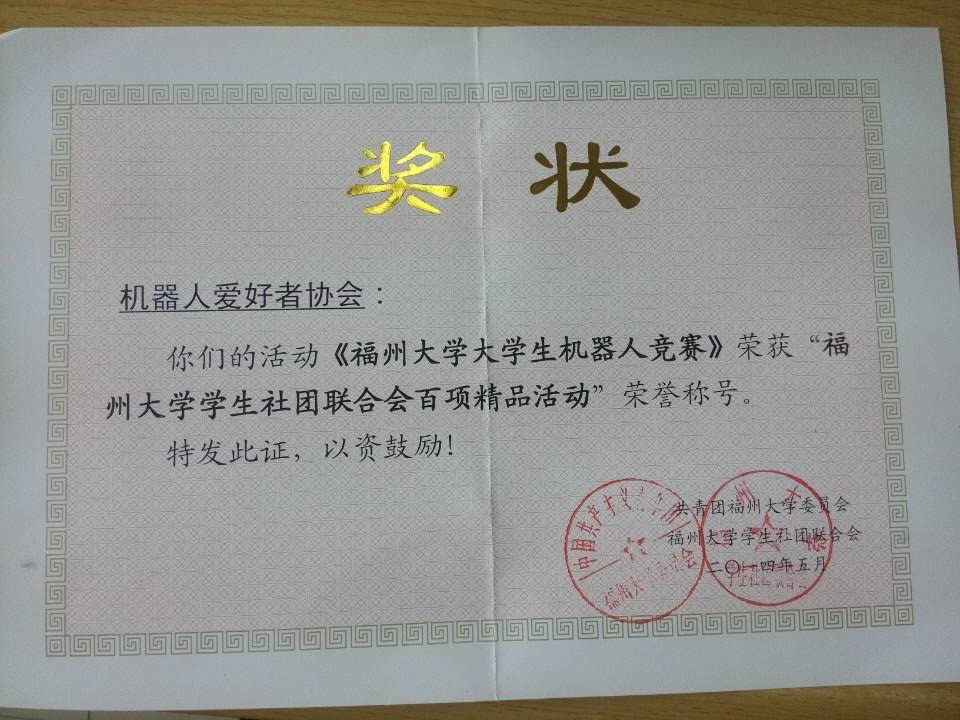 奖 状
机器人爱好者协会：
你们的活动《福州大学大学生机器人竞赛》荣获“福
州大学学生社团联合会百项精品活动”荣誉称号。
特发此证，以资鼓励！
共青团福州大学委员会
福州大学学生社团联合会
二〇一四年五月
中国共产主义青年团
福州大学委员会